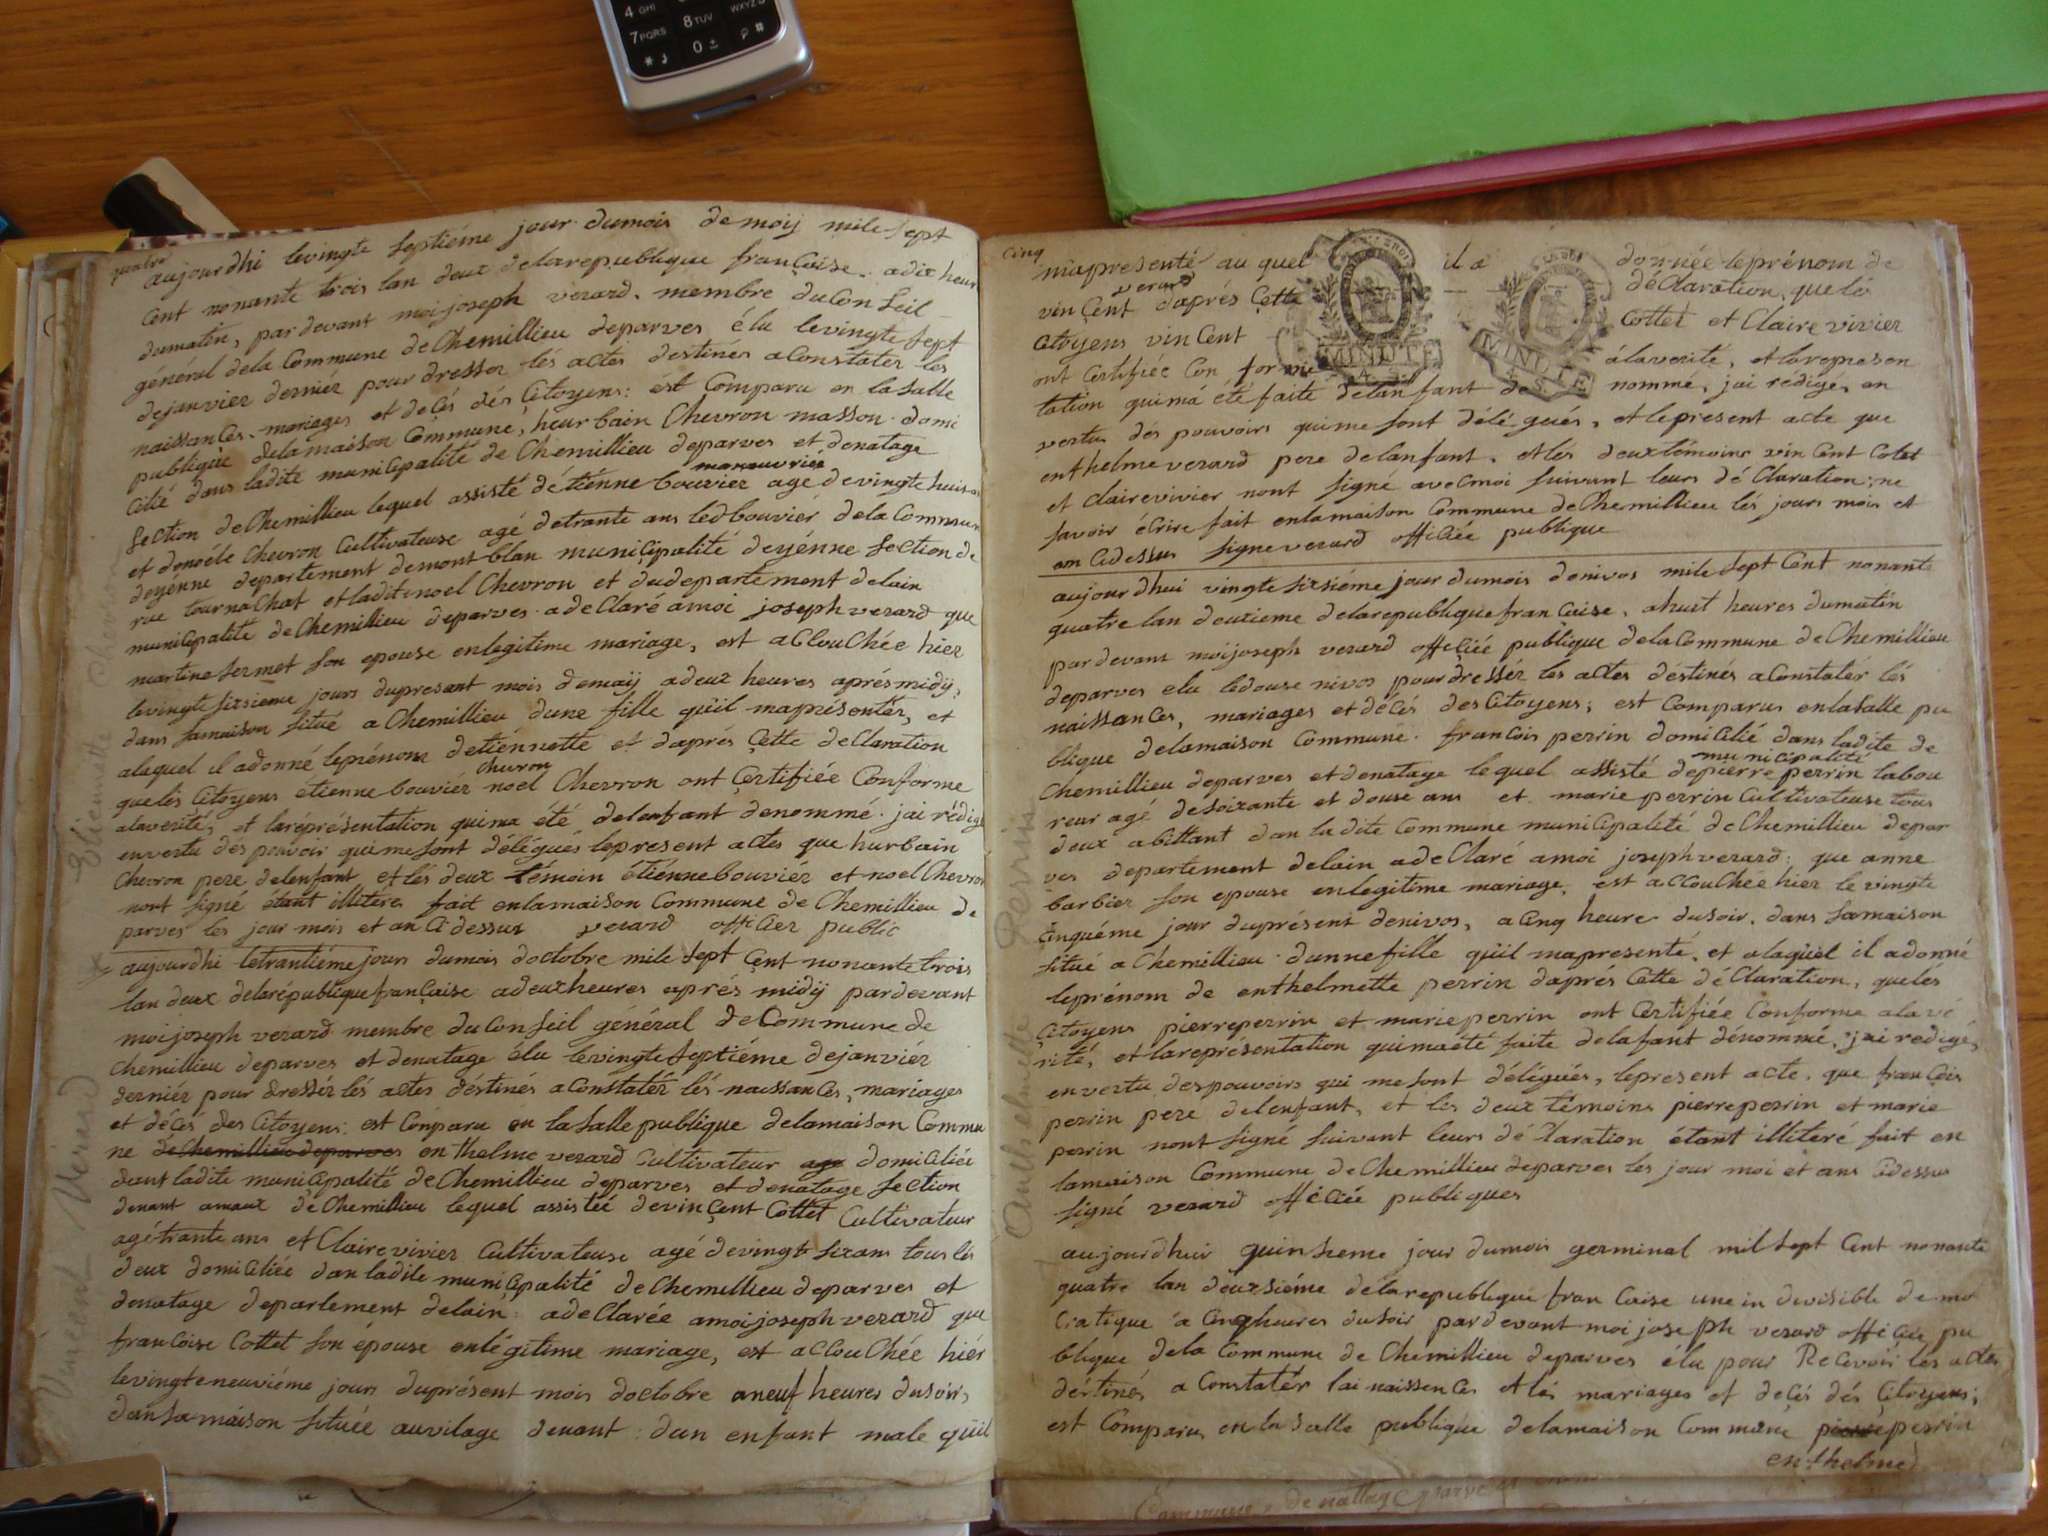 4 GHI
7PQRS 8TUV WXYZ
* 0 #
quatre
aujourdhi levingte septiéme jour dumois demoij mile sept
Cent nonante trois lan deux delarepublique francaise. adix heur
dumatin, par devant moi joseph verard. membre duConseil
général dela Commune deChemillieu deparves élu levingte sept
dejanvier derniér pour dresser lés actes destinés aConstater les
naissances, mariages et decés dés Citoyens: est Comparu en la salle
publique delamaison Commune, heurbain Chevron masson domi
Cilié dans ladite municipalité de Chemillieu deparves et denatage
manouvrié
section deChemillieu lequel assisté détiénne bouvier agé devingte huit
et denoéle Chevron Cultivateuse agé detrante ans led bouviér dela Commun
deyénne departement demont blan municipalité deyénne section de
rue tournaChat et ladite noel Chevron et dudepartement delain
municipalité deChemillieu deparves adeClaré amoi joseph verard que
martine sermet son epouse enlegitime mariage, est aCCouChée hier
levingte sixsieme jours dupresant mois demaij adeux heures aprésmidij,
dans samaison situé a Chemillieu dune fille qüil maprésentér, et
alaquel il adonné leprénom detiénnette et daprés Çette deClaration
chevron
quelés Citoyens étienne bouviér noel Chevron ont Çertifiée Conforme
alaverité, et lareprésentation quima été delenfant denommé. jai rédigé
envertu des pouvoir quimesont délégués lepresent actes que hurbain
Chevron pere delenfant et lés deux témoin étiénnebouviér et noel Chevron
nont signé étant illitéré fait enlamaison Commune de Chemillieu de
parves les jour mois et an Cidessus verard officier public
aujourdhi letrantiéme jours dumois doctobre mile sept Çent nonante trois
lan deux delarépublique francaise adeuxheures aprés midij pardevant
moijoseph verard membre duConseil général deCommune de
Chemillieu deparves et denatage élu levingte septiéme dejanviér
derniér pour dressér lés actes déstinés aConstatér lés naissances, mariages
et décés des Citoyens: est Comparu en lasalle publique delamaison Commu
ne deChemillieu deparves enthelme verard Cultivateur age domiciliée
dans ladite municipalité deChemillieu deparves et denatage section
denant amaux deChemillieu lequel assistée devinÇent Cottet Cultivateur
agé trante ans et Claire vivier Cultivateuse agé devingt sixans tous lés
deux domiciliée dan ladite municipalité deChemillieu deparves et
denatage departement delain: adeClarée amoijoseph verard que
francoise Cottet son épouse enlégitime mariage, est aCCouChée hiér
levingteneuviéme jours duprésent mois doctobre aneuf heures dusoir,
dansamaison situéé auvilage denant: dun enfant male qüil
Etiennette Chevron
Vincent Vérard
Cinq
mapresenté au quel il a donnée leprénom de
verard
vin Çent daprés Çette déClaration, que lé
Citoyens vin Cent Cottet et Claire vivier
ont Certifiée Con forme álaverité, et lareprésen
tation quimá été faite delanfant de nommé, jai rédigé, en
vertu dés pouvoirs quime sont délé gués, et lepresent acte que
enthelme verard pere delanfant, et lés deux témoins vin Cent Cotet
et Claire vivier nont signé avecmoi suivant leurs déClaration; ne
savoir écrire fait enlamaison Commune deChemillieu lés jours mois et
an Cidessus signe verard officiée publique
MINUTE
4. S.
MINUTE
4. S.
aujourdhui vingte sixsiéme jour dumois denivos mile sept Cent nonante
quatre lan deuxieme delarepublique fran Caise. ahuit heures dumatin
par devant moijoseph verard officiée publique delaCommune deChemillieu
deparves elu ledouse nivos pour dressér lés actes déstinés aConstatér lés
naissances, mariages et décés desCitoyens; est Comparus enlasalle pu
blique delamaison Commune. francois perrin domicilié dans ladite de
municipalité
Chemillieu deparves et denatage lequel assisté depierre perrin labou
reur agé desoixante et douse ans et marie perrin Cultivateuse tous
deux abittant dan la dite Commune municipalité deChemillieu depar
ves departement delain adeClaré amoi joseph verard: que anne
barbier son epouse enlegitime mariage, est aCCouChée hier le vingte
Cinquéme jour duprésent denivos, a Cinq heure dusoir, dans samaison
situé a Chemillieu. dunnefille qüil mapresenté, et alaquel il adonné
leprénom de enthelmette perrin daprés Cette déClaration, quelés
Çitoyens pierreperrin et marieperrin ont Certifiée Conforme alavé
rité, et lareprésentation quimaété faite delafant dénommé, jai redigé,
envertu despouvoirs qui mesont délégués, lepresent acte, que francois
perrin pere delenfant, et lés deux témoins pierreperrin et marie
perrin nont signé suivant leurs déClaration étant illiteré fait en
lamaison Commune deChemillieu deparves les jour moi et ans Cidessus
signé verard officiée publiques
aujourdhuir quinseme jour dumois germinal mil sept Cent nonante
quatre lan déuxsiéme délarepublique fran Caise une in divisible démo
Cratique à Cinqheures dusoir pardevant moi joseph verard officiée pu
blique dela Commune de Chemillieu deparves élu pour Recevoir lés actes
déstinés a Constatér lai naissences et lés mariages et decés dés Çitoyens;
est Comparu en la salle publique delamaison Commune pierre perrin
enthelme
Anthelmette Perrin
Commune de nattage parve